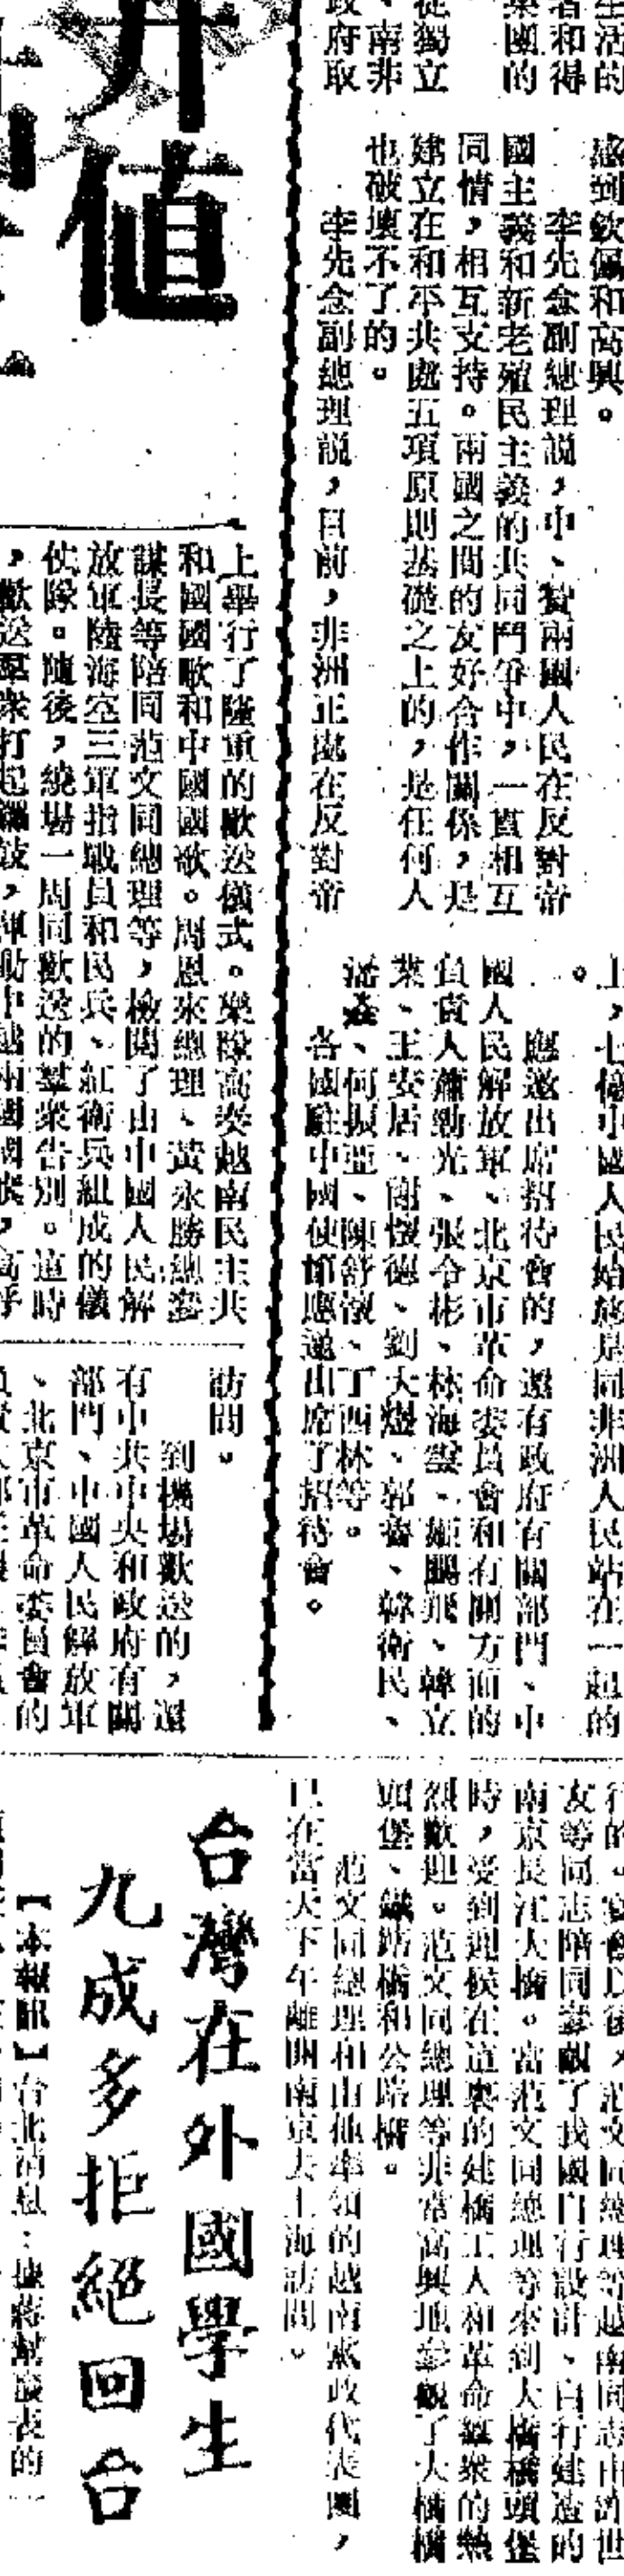 生活的
者和得
集團的
從獨立
、南非
政府取
感到欽佩和高興。
李先念副總理說，中、贊兩國人民在反對帝
國主義和新老殖民主義的共同鬥爭中，一直相互
同情，相互支持。兩國之間的友好合作關係，是
建立在和平共處五項原則基礎之上的，是任何人
也破壞不了的。
李先念副總理說，目前，非洲正處在反對帝
上，七億中國人民始終是同非洲人民站在一起的
。
應邀出席招待會的，還有政府有關部門、中
國人民解放軍、北京市革命委員會和有關方面的
負責人蕭勁光、張令彬、林海雲、姬鵬飛、韓立
業、王安居、謝懷德、劉大煜、郭魯、韓衛民、
潘焱、何振亞、陳舒懷、丁西林等。
各國駐中國使節應邀出席了招待會。
值
上舉行了隆重的歡送儀式。樂隊高奏越南民主共
和國國歌和中國國歌。周恩來總理、黃永勝總參
謀長等陪同范文同總理等，檢閱了由中國人民解
放軍陸海空三軍指戰員和民兵、紅衛兵組成的儀
仗隊。隨後，繞場一周同歡送的羣衆告別。這時
，歡送羣衆打起鑼鼓，揮動中越兩國國旗，高呼
訪問。
到機場歡送的，還
有中共中央和政府有關
部門、中國人民解放軍
、北京市革命委員會的
友等同志陪同參觀了我國自行設計、自行建造的
南京長江大橋。當范文同總理等來到大橋橋頭堡
時，受到迎候在這裏的建橋工人和革命羣衆的熱
烈歡迎。范文同總理等非常高興地參觀了大橋橋
頭堡、鐵路橋和公路橋。
范文同總理和由他率領的越南黨政代表團，
已在當天下午離開南京去上海訪問。
台灣在外國學生
九成多拒絕回台
【本報訊】台北消息：據蔣幫發表的一